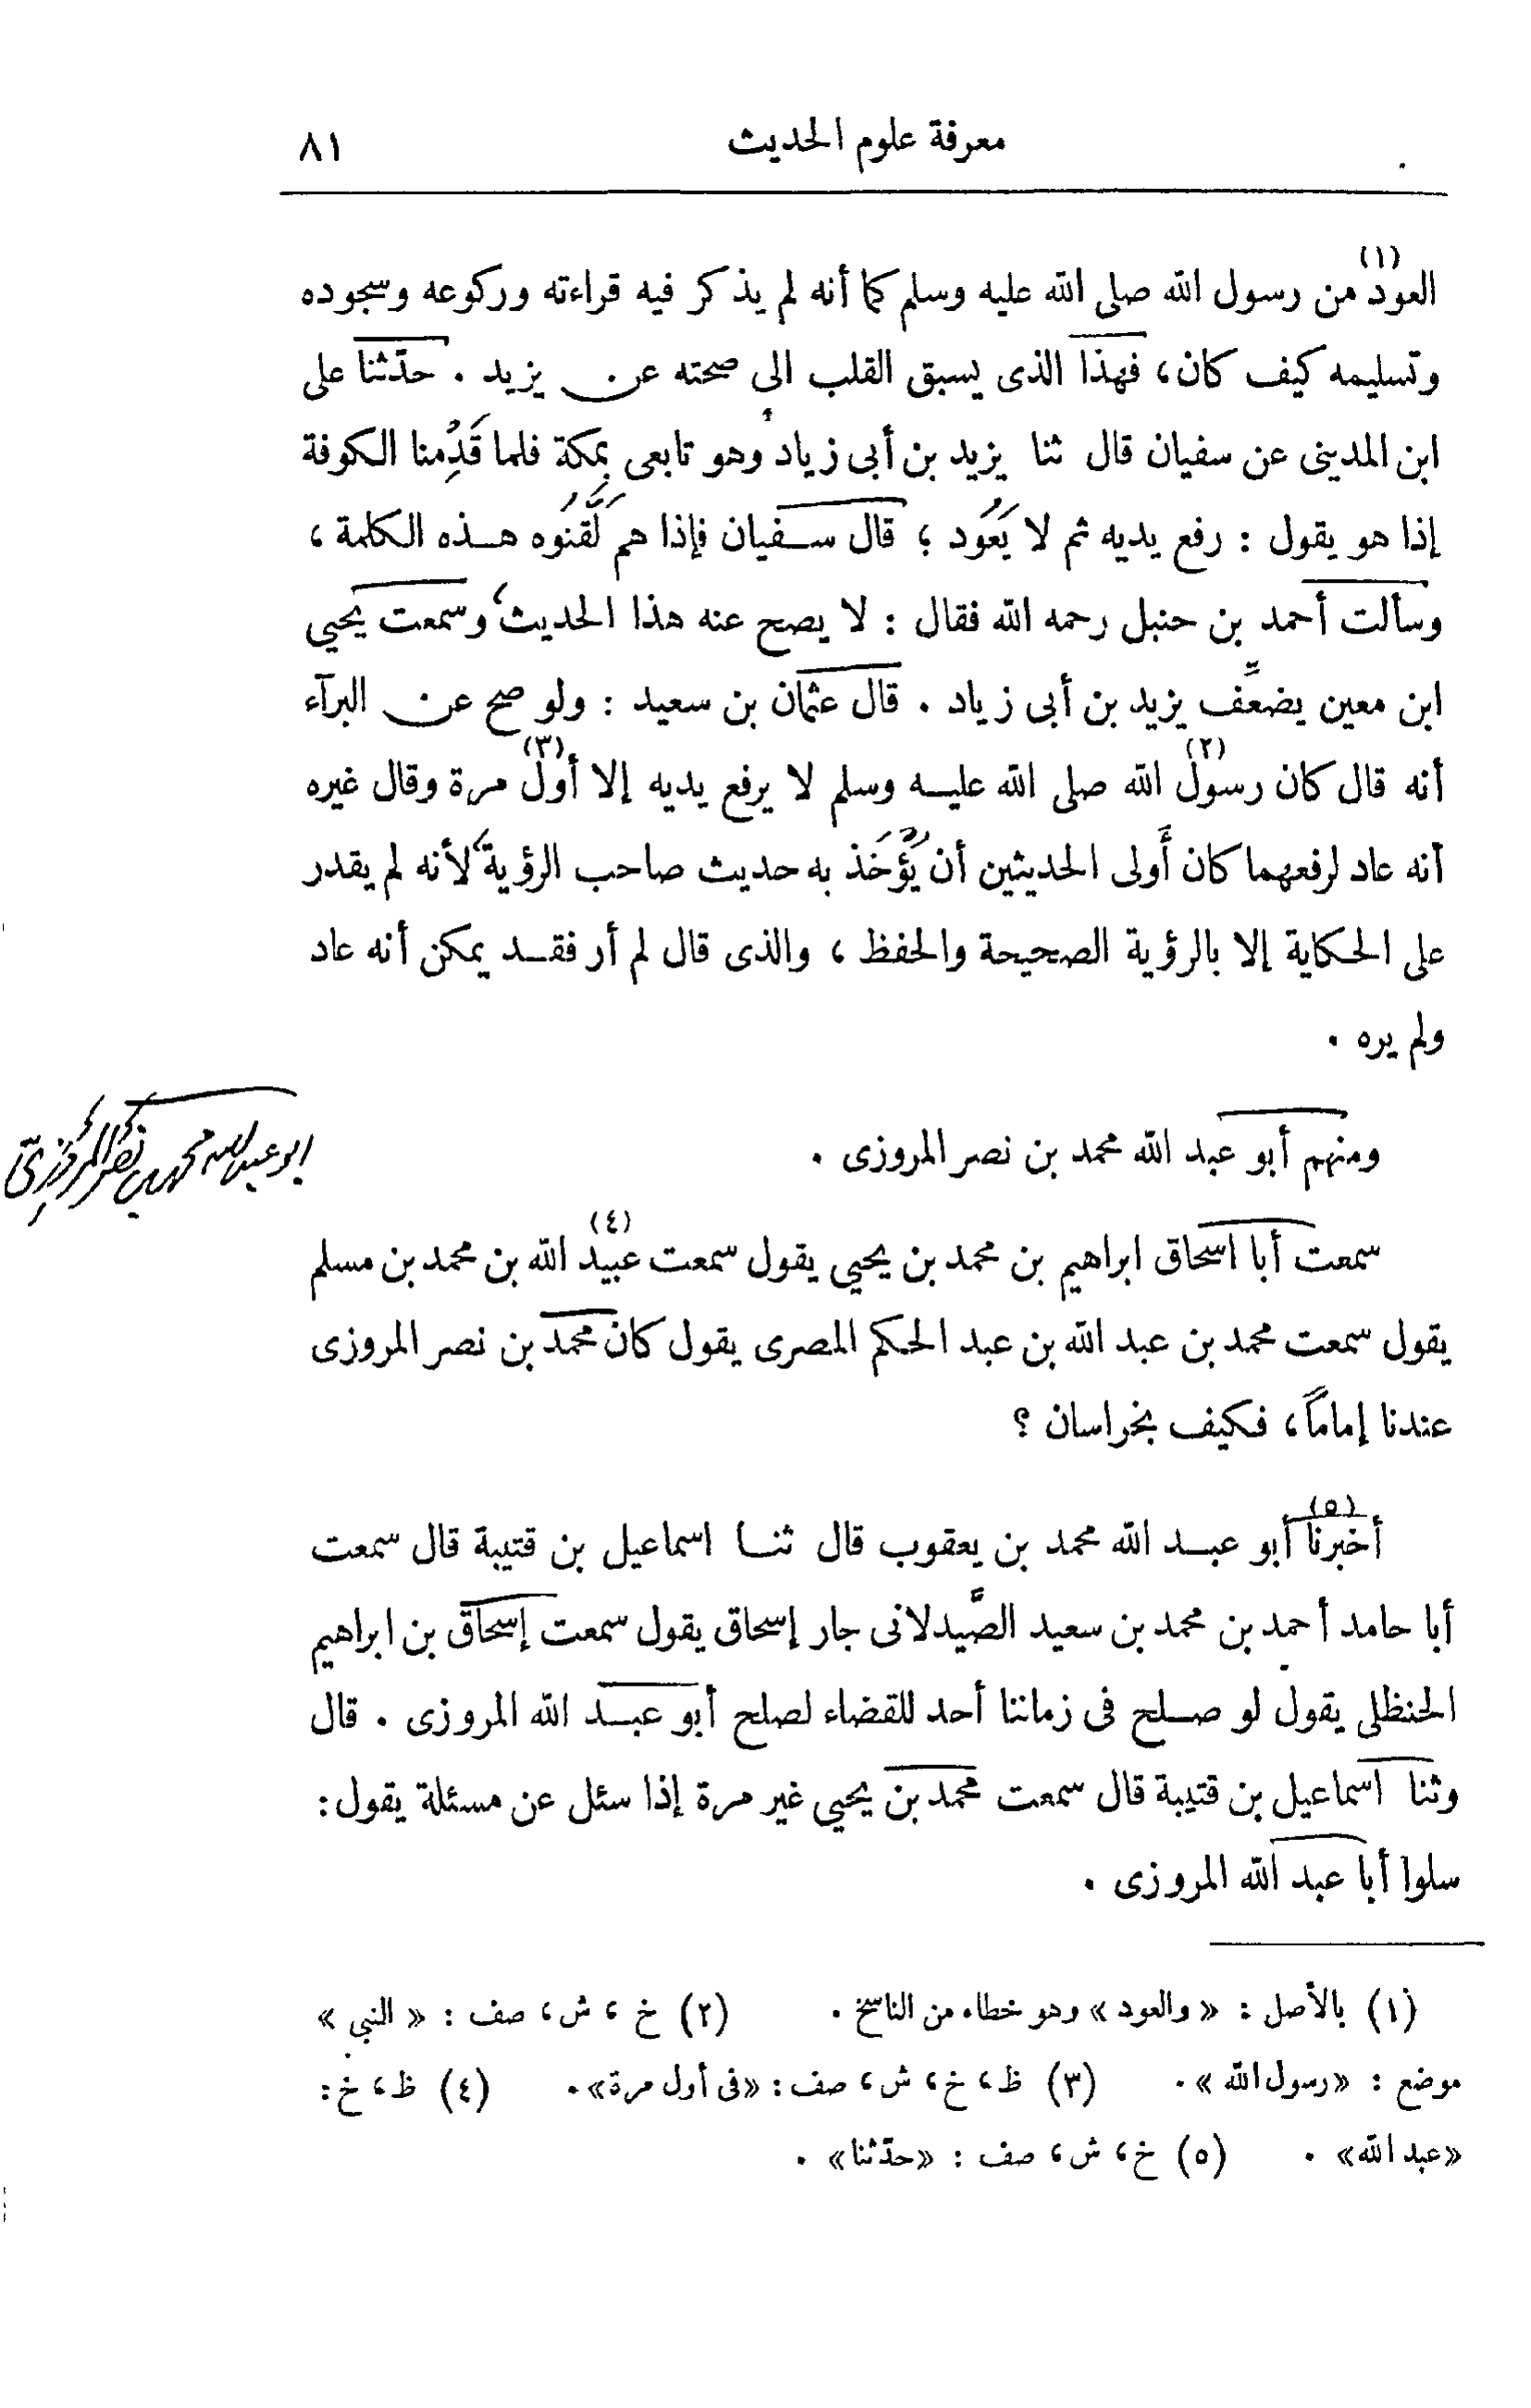 معرفة علوم الحديث ٨١
العود(١) من رسول الله صلى الله عليه وسلم كما أنه لم يذكر فيه قراءته وركوعه وسجوده
وتسليمه كيف كان، فهذا الذى يسبق القلب الى صحته عن يزيد . حدّثنا على
ابن المدينى عن سفيان قال ثنا يزيد بن أبى زياد وهو تابعى بمكة فلما قَدِمنا الكوفة
إذا هو يقول : رفع يديه ثم لا يَعُود ؛ قال سفيان فإذا هم لَقَّنُوه هذه الكلمة ،
وسألت أحمد بن حنبل رحمه الله فقال : لا يصح عنه هذا الحديث، وسمعت يحيى
ابن معين يضعِّف يزيد بن أبى زياد . قال عثمان بن سعيد : ولو صح عن البرآء
أنه قال كان رسول(٢) الله صلى الله عليه وسلم لا يرفع يديه إلا أول(٣) مرة وقال غيره
أنه عاد لرفعهما كان أَولى الحديثين أن يُؤْخَذ به حديث صاحب الرؤية، لأنه لم يقدر
على الحكاية إلا بالرؤية الصحيحة والحفظ ، والذى قال لم أر فقد يمكن أنه عاد
ولم يره .
ومنهم أبو عبد الله محمد بن نصر المروزى .
ابو عبد الله محمد بن نصر المروزى
سمعت أبا اسحاق ابراهيم بن محمد بن يحيى يقول سمعت عبيد(٤) الله بن محمد بن مسلم
يقول سمعت محمد بن عبد الله بن عبد الحكم المصرى يقول كان محمد بن نصر المروزى
عندنا إماماً، فكيف بخراسان ؟
أخبرنا(٥) أبو عبد الله محمد بن يعقوب قال ثنا اسماعيل بن قتيبة قال سمعت
أبا حامد أحمد بن محمد بن سعيد الصَّيدلانى جار إسحاق يقول سمعت إسحاق بن ابراهيم
الحنظلى يقول لو صلح فى زماننا أحد للقضاء لصلح أبو عبد الله المروزى . قال
وثنا اسماعيل بن قتيبة قال سمعت محمد بن يحيى غير مرة إذا سئل عن مسئلة يقول:
سلوا أبا عبد الله المروزى .
(١) بالأصل : «والعود» وهو خطاء من الناسخ . (٢) خ ، ش، صف : «النبي»
موضع : «رسول الله» . (٣) ظ، خ، ش، صف: «فى أول مرة». (٤) ظ، خ:
«عبد الله» . (٥) خ، ش، صف : «حدّثنا» .